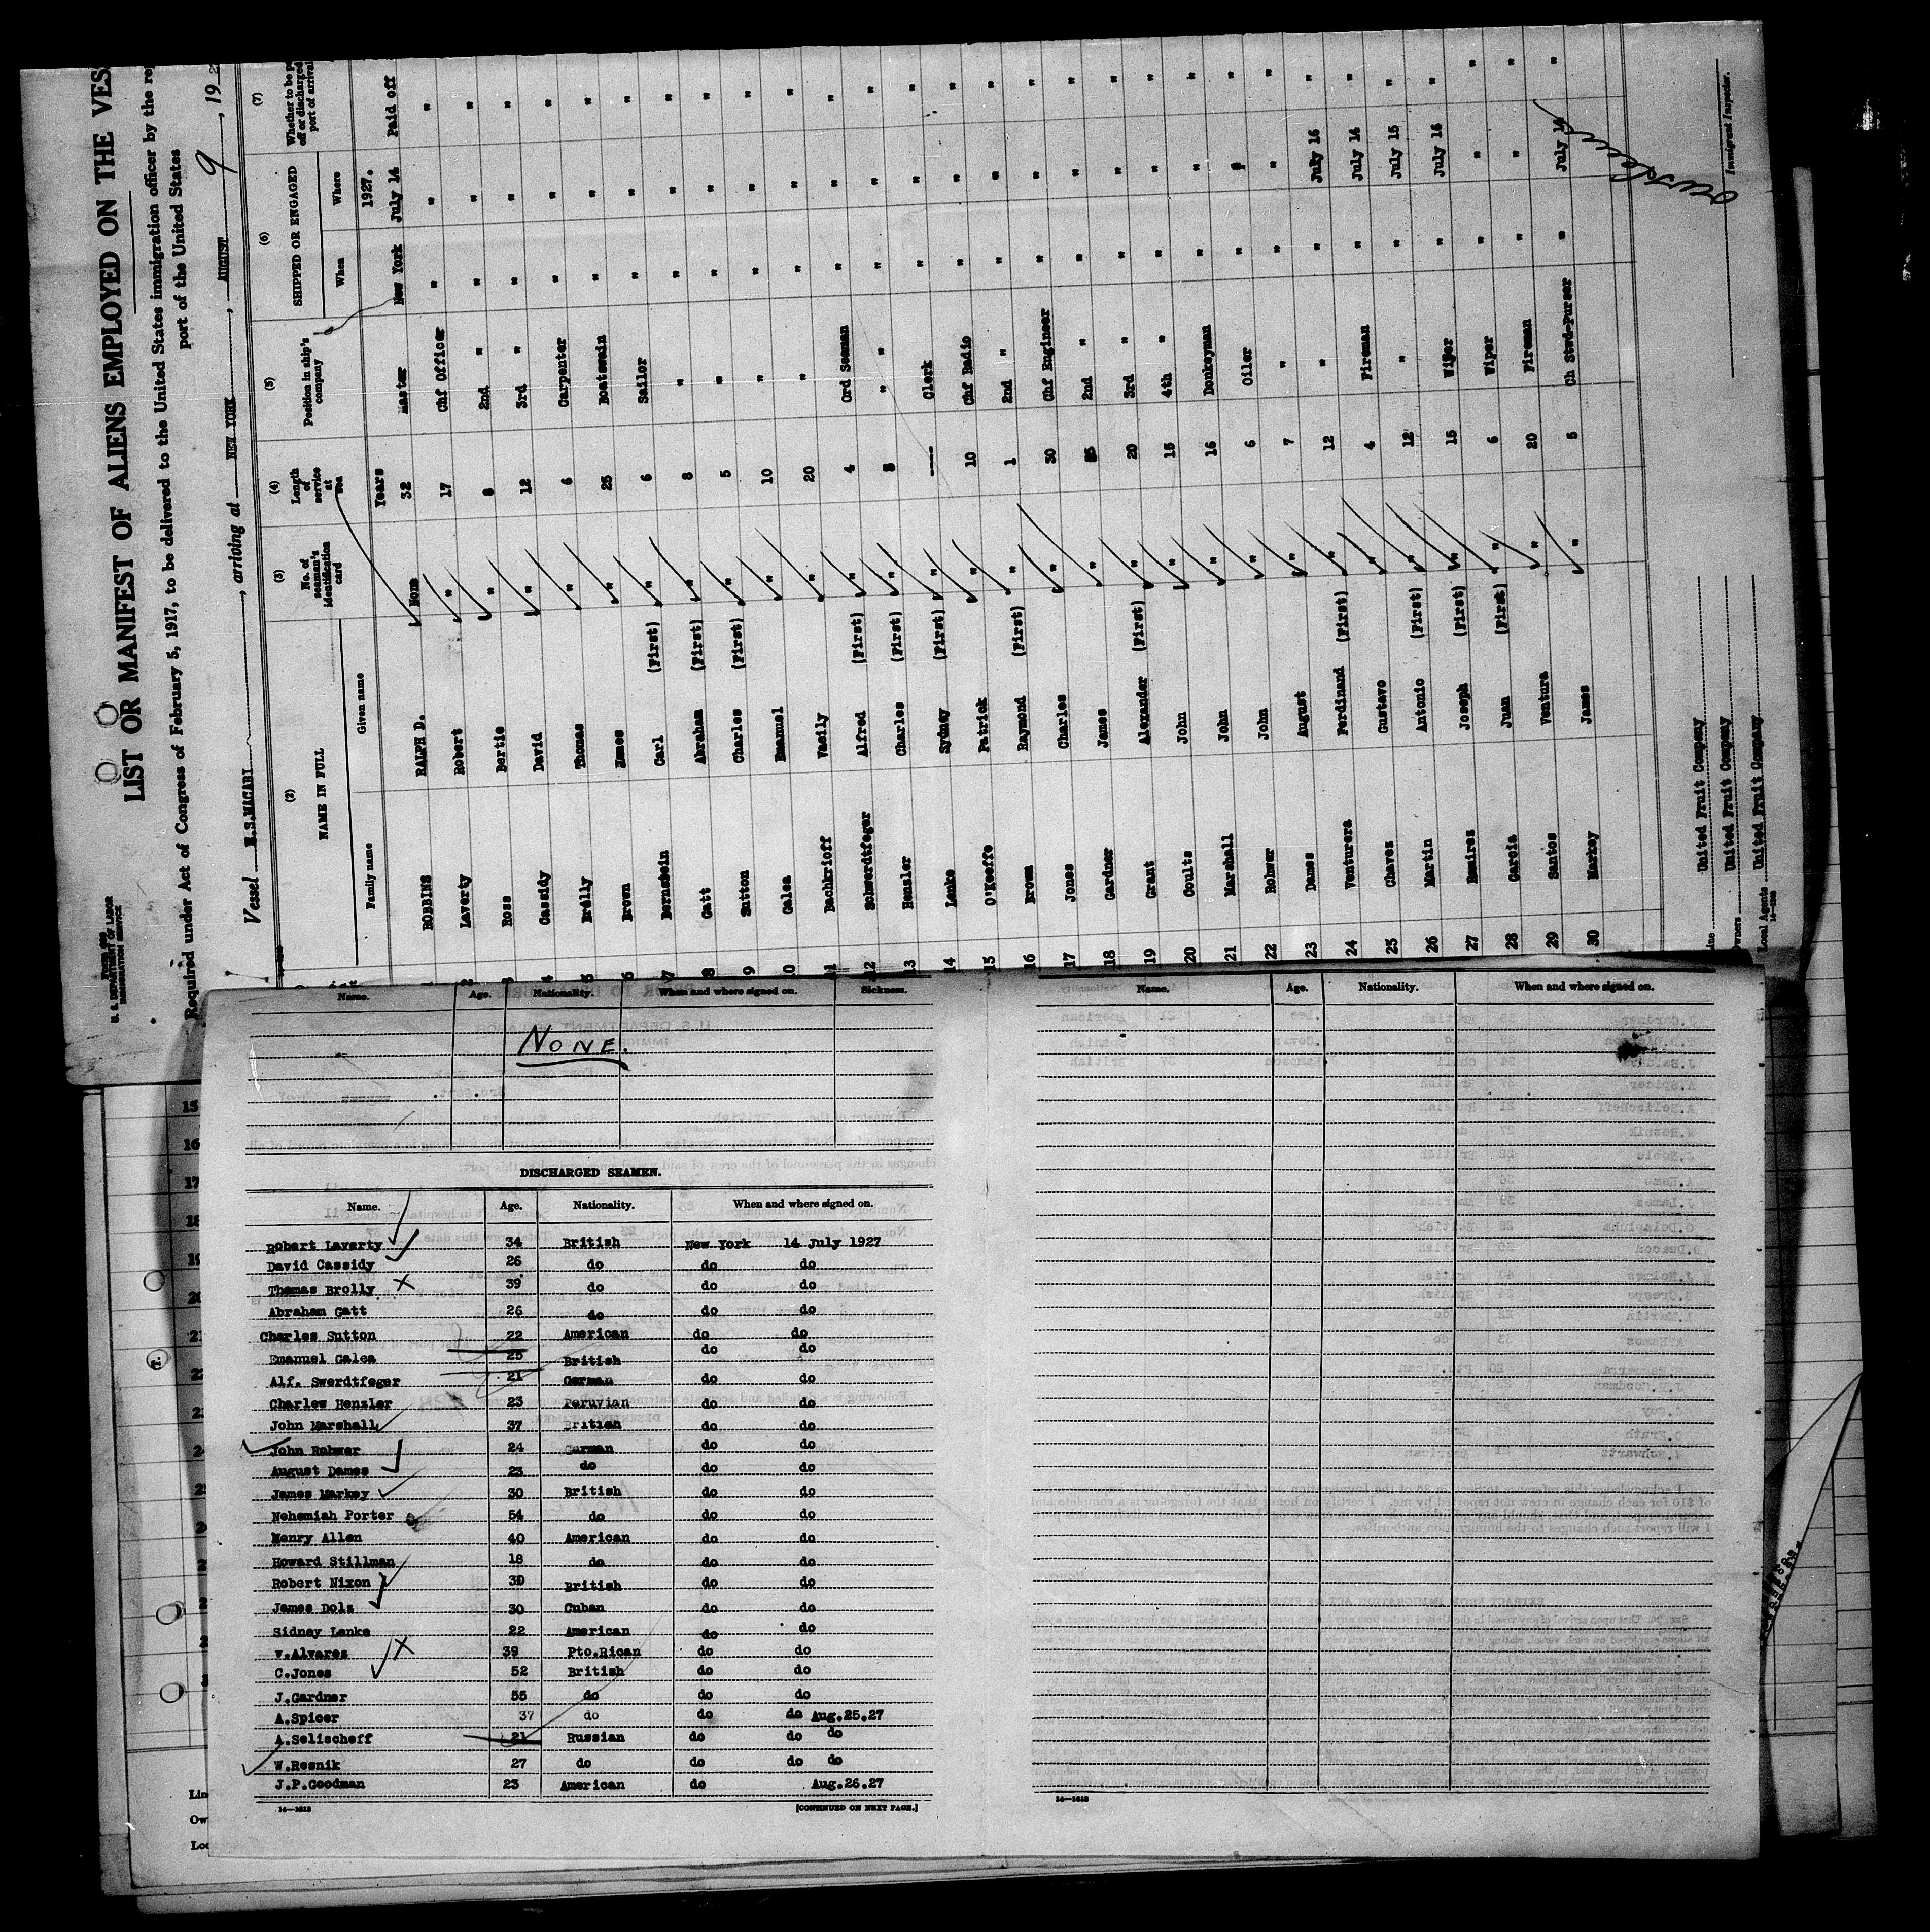 Form 680
U. S. DEPARTMENT OF LABOR
IMMIGRATION SERVICE
LIST OR MANIFEST OF ALIENS EMPLOYED ON THE VES
Required under Act of Congress of February 5, 1917, to be delivered to the United States immigration officer by the re
port of the United States
Vessel M.S.MACABI, arriving at NEW YORK, AUGUST 9, 192
(2) (3) (4) (5) (6) (7)
NAME IN FULL No. of seaman's identification card Length of service at sea Position in ship's company SHIPPED OR ENGAGED Whether to be p off or discharged port of arrival
Family name Given name When Where
Years 1927.
ROBBINS RALPH D. None 32 Master New York July 14 Paid off
Laverty Robert " 17 Chf Officer " " "
Ross Bertie " 8 2nd " " " "
4 Cassidy David " 12 3rd " " " "
5 Brolly Thomas " 6 Carpenter " " "
6 Brown James " 25 Boatswain " " "
7 Bernstein Carl (First) " 6 Sailor " " "
8 Gatt Abraham (First) " 8 " " " "
9 Sutton Charles (First) " 5 " " " "
10 Galea Emanuel " 10 " " " "
11 Bachkrioff Vasily " 20 " " " "
12 Schwerdtfeger Alfred (First) " 4 Ord Seaman " " "
13 Hensler Charles (First) " " " " " "
14 Lenke Sydney (First) " ---- Clerk " " "
15 O'Keeffe Patrick " 10 Chf Radio " " "
16 Brown Raymond (First) " 1 2nd " " " "
17 Jones Charles " 30 Chf Engineer " " "
18 Gardner James " 2nd " " " "
19 Grant Alexander (First) " 20 3rd " " " "
20 Coults John " 15 4th " " " "
21 Marshall John " 16 Donkeyman " " "
22 Rohwer John " 6 Oiler " " "
23 Dames August " 7 " " " "
24 Venturera Ferdinand (First) " 12 " " July 16 "
25 Chaves Gustavo " 4 Fireman " July 14 "
26 Martin Antonio (First) " 12 " " July 15 "
27 Ramires Joseph (First) " 15 Wiper " July 16 "
28 Garcia Juan (First) " 6 Wiper " " "
29 Santos Ventura " 20 Fireman " " "
30 Markey James " 5 Ch Stwd-Purser " July 14 "
Line United Fruit Company
Owners United Fruit Company
Local Agents United Fruit Company
Immigrant Inspector.
Name. Age. Nationality. When and where signed on. Sickness.
NONE.
DISCHARGED SEAMEN.
Name. Age. Nationality. When and where signed on.
Robert Laverty 34 British New York 14 July 1927
David Cassidy 26 do do do
Thomas Brolly 39 do do do
Abraham Gatt 26 do do do
Charles Sutton 22 American do do
Emanuel Galea 25 British do do
Alf. Swerdtfeger 21 German do do
Charlew Henzler 23 Peruvian do do
John Marshall 37 British do do
John Rohwer 24 German do do
August Dames 23 do do do
James Markey 30 British do do
Nehemiah Porter 54 do do do
Henry Allen 40 American do do
Howard Stillman 18 do do do
Robert Nixon 30 British do do
James Dolz 30 Cuban do do
Sidney Lenke 22 American do do
V.Alvares 39 Pto.Rican do do
C.Jones 52 British do do
J.Gardner 55 do do do
A.Spicer 37 do do do Aug.25.27
A.Selischeff 21 Russian do do do
W.Resnik 27 do do do do
J.P.Goodman 23 American do Aug.26.27
14—1613 [CONTINUED ON NEXT PAGE.]
Name. Age. Nationality. When and where signed on.
14—1613
15
16
17
18
19
20
21